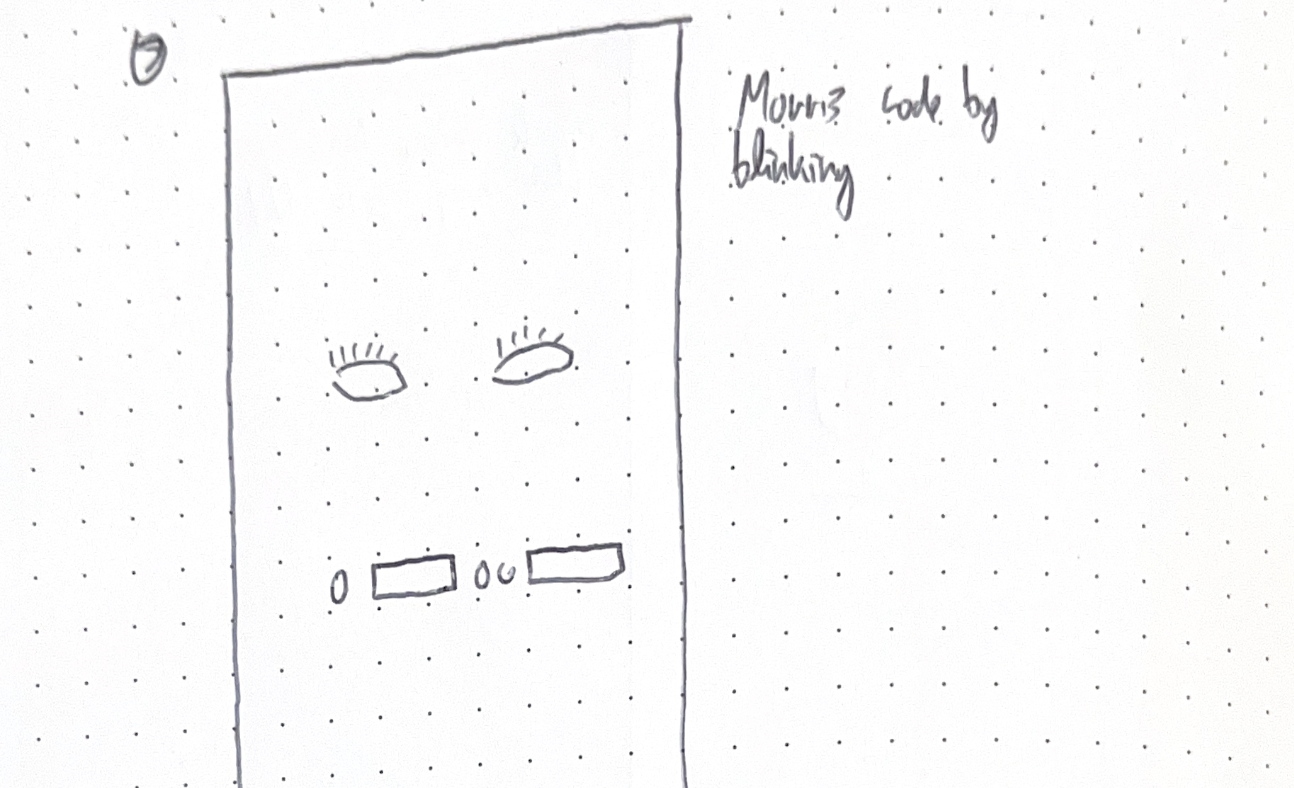 Morris code by
blinking